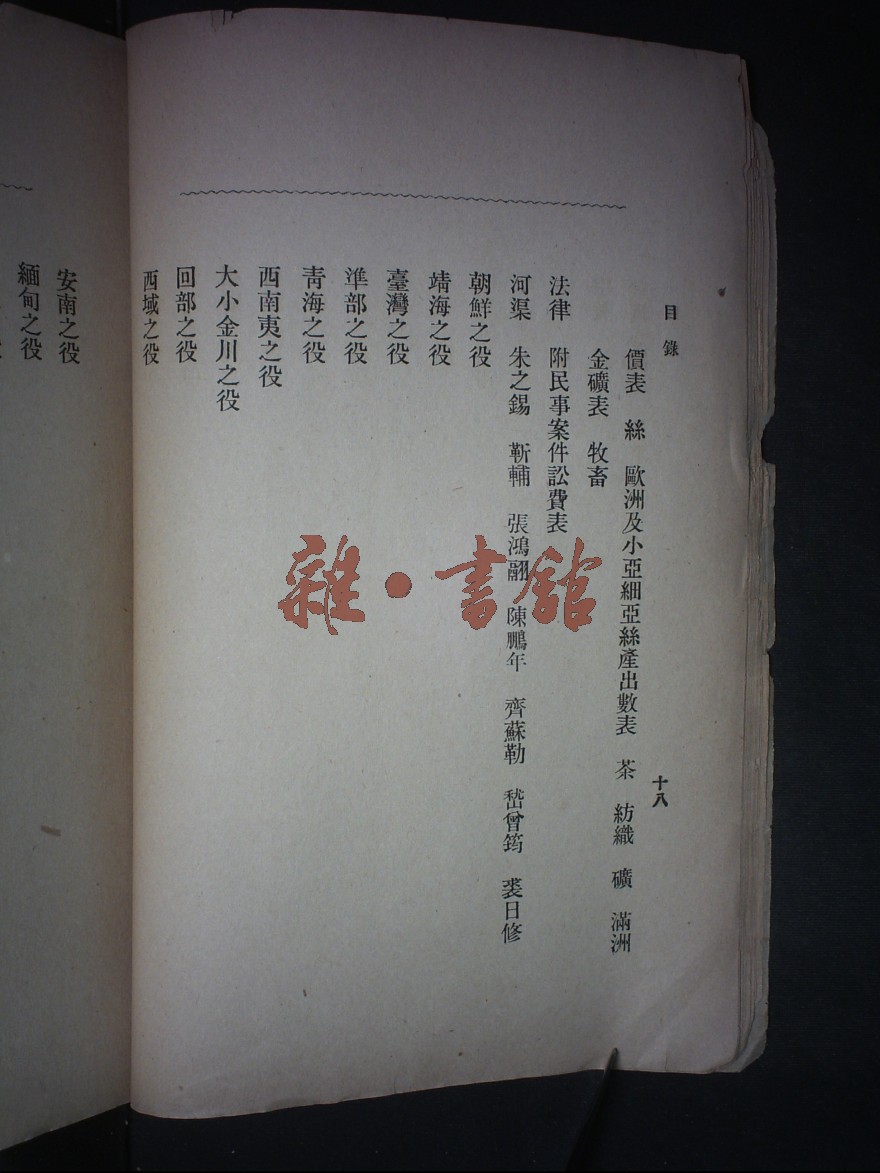 目錄
十八
價表　絲　歐洲及小亞細亞絲產出數表　茶　紡織　礦　滿洲
金礦表　牧畜
法律　附民事案件訟費表
河渠　朱之錫　靳輔　張鴻翮　陳鵬年　齊蘇勒　嵆曾筠　裘日修
朝鮮之役
靖海之役
臺灣之役
準部之役
青海之役
西南夷之役
大小金川之役
回部之役
西域之役
安南之役
緬甸之役
雜・書館